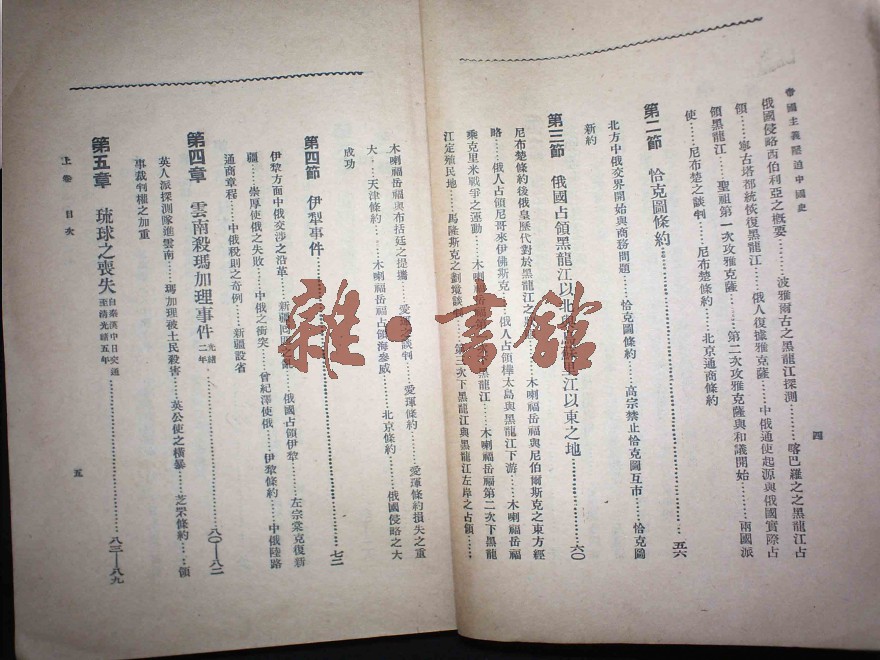 帝國主義壓迫中國史
四
俄國侵略西伯利亞之概要……波雅爾古之黑龍江探測……喀巴羅之黑龍江占
領……寧古塔都統恢復黑龍江……俄人復據雅克薩……中俄通使起源與俄國實際占
領黑龍江……聖祖第一次攻雅克薩……第二次攻雅克薩與和議開始……兩國派
使……尼布楚之談判……尼布楚條約……北京通商條約
第二節 恰克圖條約……五六
北方中俄交界開始與商務問題……恰克圖條約……高宗禁止恰克圖互市……恰克圖
新約
第三節 俄國占領黑龍江以北 江以東之地……六〇
尼布楚條約後俄皇歷代對於黑龍江之……木喇福岳福與尼伯爾斯克之東方經
略……俄人占領尼哥來伊佛斯克……俄人占領樺太島與黑龍江下游……木喇福岳福
乘克里米戰爭之運動……木喇福岳福第一次下黑龍江……木喇福岳福第二次下黑龍
江定殖民地……馬隆斯克之劃境談判……第三次下黑龍江與黑龍江左岸之占領……
木喇福岳福與布括廷之提攜……愛琿之談判……愛琿條約……愛琿條約損失之重
大……天津條約……木喇福岳福占領海參威……北京條約……俄國侵略之大
成功
第四節 伊犁事件……七二
伊犂方面中俄交涉之沿革……新疆回 之亂……俄國占領伊犂……左宗棠克復新
疆……崇厚使俄之失敗……中俄之衝突……曾紀澤使俄……伊犂條約……中俄陸路
通商章程……中俄稅則之奇例……新疆設省
第四章 雲南殺瑪加理事件 光緒二年……八〇—八二
英人派探測隊進雲南……瑪加理被土民殺害……英公使之橫暴……芝罘條約……領
事裁判權之加重
第五章 琉球之喪失 自秦漢中日交通至清光緒五年……八三—八九
上卷 目次
五
雜·書館